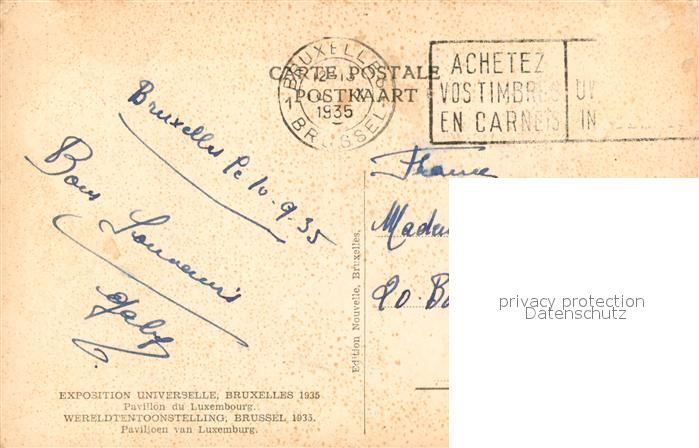 CARTE POSTALE
POSTKAART
BRUXELLES
12-13
IX
1935
BRUSSEL
1
1
ACHETEZ
VOS TIMBRES
EN CARNETS
IN
Bruxelles le 10-9-35
Bons Souvenirs
Gaby
France
Madem
20
Edition Nouvelle, Bruxelles.
privacy protection
Datenschutz
EXPOSITION UNIVERSELLE, BRUXELLES 1935
Pavillon du Luxembourg.
WERELDTENTOONSTELLING, BRUSSEL 1935.
Paviljoen van Luxemburg.